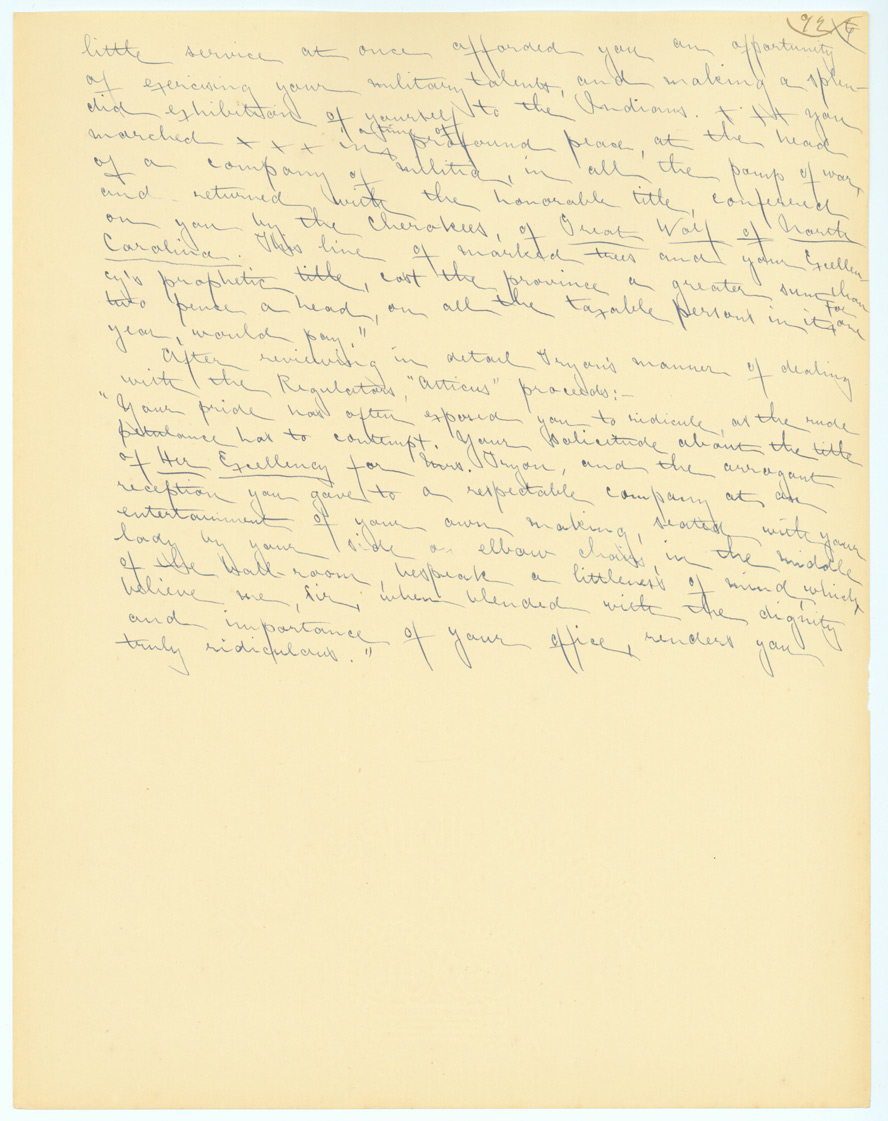 92
little service at once afforded you an opportunity
of exercising your military talents, and making a splen-
did exhibition of yourself to the Indians. x x x you
marched x x x in a time of profound peace, at the head
of a company of militia, in all the pomp of war,
and returned with the honorable title, conferred
on you by the Cherokees, of Great Wolf of North
Carolina. This line of marked trees and your Excellen-
cy's prophetic title, cost the province a greater sum than
two pence a head, on all the taxable persons in it for one
year, would pay."
After reviewing in detail Tryon's manner of dealing
with the Regulators, "Atticus" proceeds:-
"Your pride has often exposed you to ridicule, as the rude
petulance has to contempt. Your solicitude about the title
of Her Excellency for Mrs. Tryon, and the arrogant
reception you gave to a respectable company at an
entertainment of your own making, seated with your
lady by your side on elbow chairs, in the middle
of the ball room, bespeak a littleness of mind, which,
believe me, Sir, when blended with the dignity
and importance of your office, renders you
truly ridiculous."